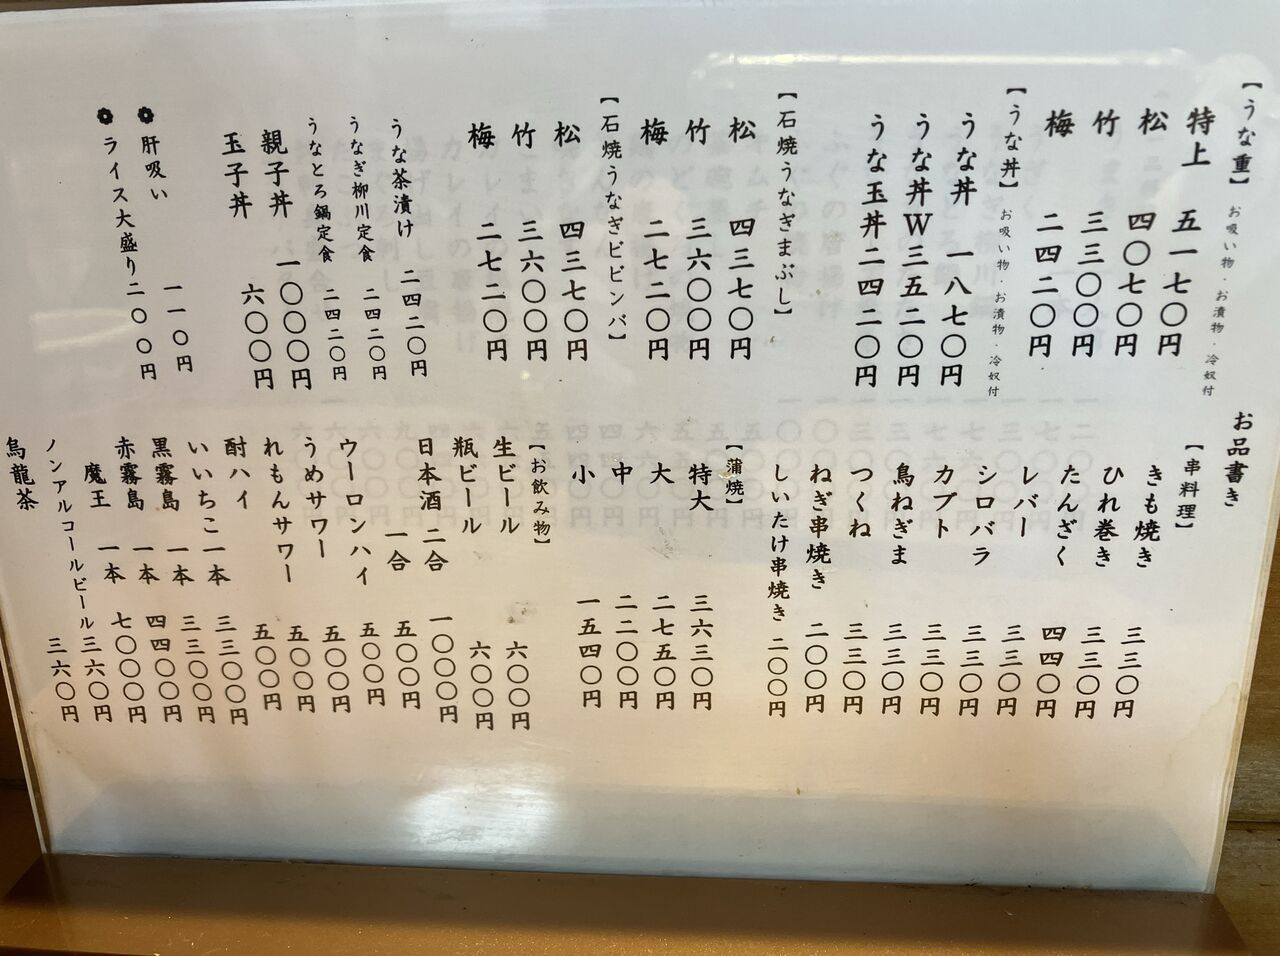 【うな重】お吸い物・お漬物・冷奴付
特上 五一七〇円
松 四〇七〇円
竹 三三〇〇円
梅 二四二〇円
【うな丼】お吸い物・お漬物・冷奴付
うな丼 一八七〇円
うな丼W 三五二〇円
うな玉丼 二四二〇円
【石焼うなぎまぶし】
松 四三七〇円
竹 三六〇〇円
梅 二七二〇円
【石焼うなぎビビンバ】
松 四三七〇円
竹 三六〇〇円
梅 二七二〇円
うな茶漬け 二四二〇円
うなぎ柳川定食 二四二〇円
うなとろ鍋定食 二四二〇円
親子丼 一〇〇〇円
玉子丼 六〇〇円
肝吸い 一一〇円
ライス大盛り 二〇〇円
お品書き
【串料理】
きも焼き 三三〇円
ひれ巻き 三三〇円
たんざく 四四〇円
レバー 三三〇円
シロバラ 三三〇円
カブト 三三〇円
鳥ねぎま 三三〇円
つくね 三三〇円
ねぎ串焼き 二〇〇円
しいたけ串焼き 二〇〇円
【蒲焼】
特大 三六三〇円
大 二七五〇円
中 二二〇〇円
小 一五四〇円
【お飲み物】
生ビール 六〇〇円
瓶ビール 六〇〇円
日本酒 二合 一〇〇〇円
一合 五〇〇円
ウーロンハイ 五〇〇円
うめサワー 五〇〇円
れもんサワー 五〇〇円
酎ハイ 五〇〇円
いいちこ 一本 三三〇〇円
黒霧島 一本 三三〇〇円
赤霧島 一本 四四〇〇円
魔王 一本 七〇〇〇円
ノンアルコールビール 三六〇円
烏龍茶 三六〇円